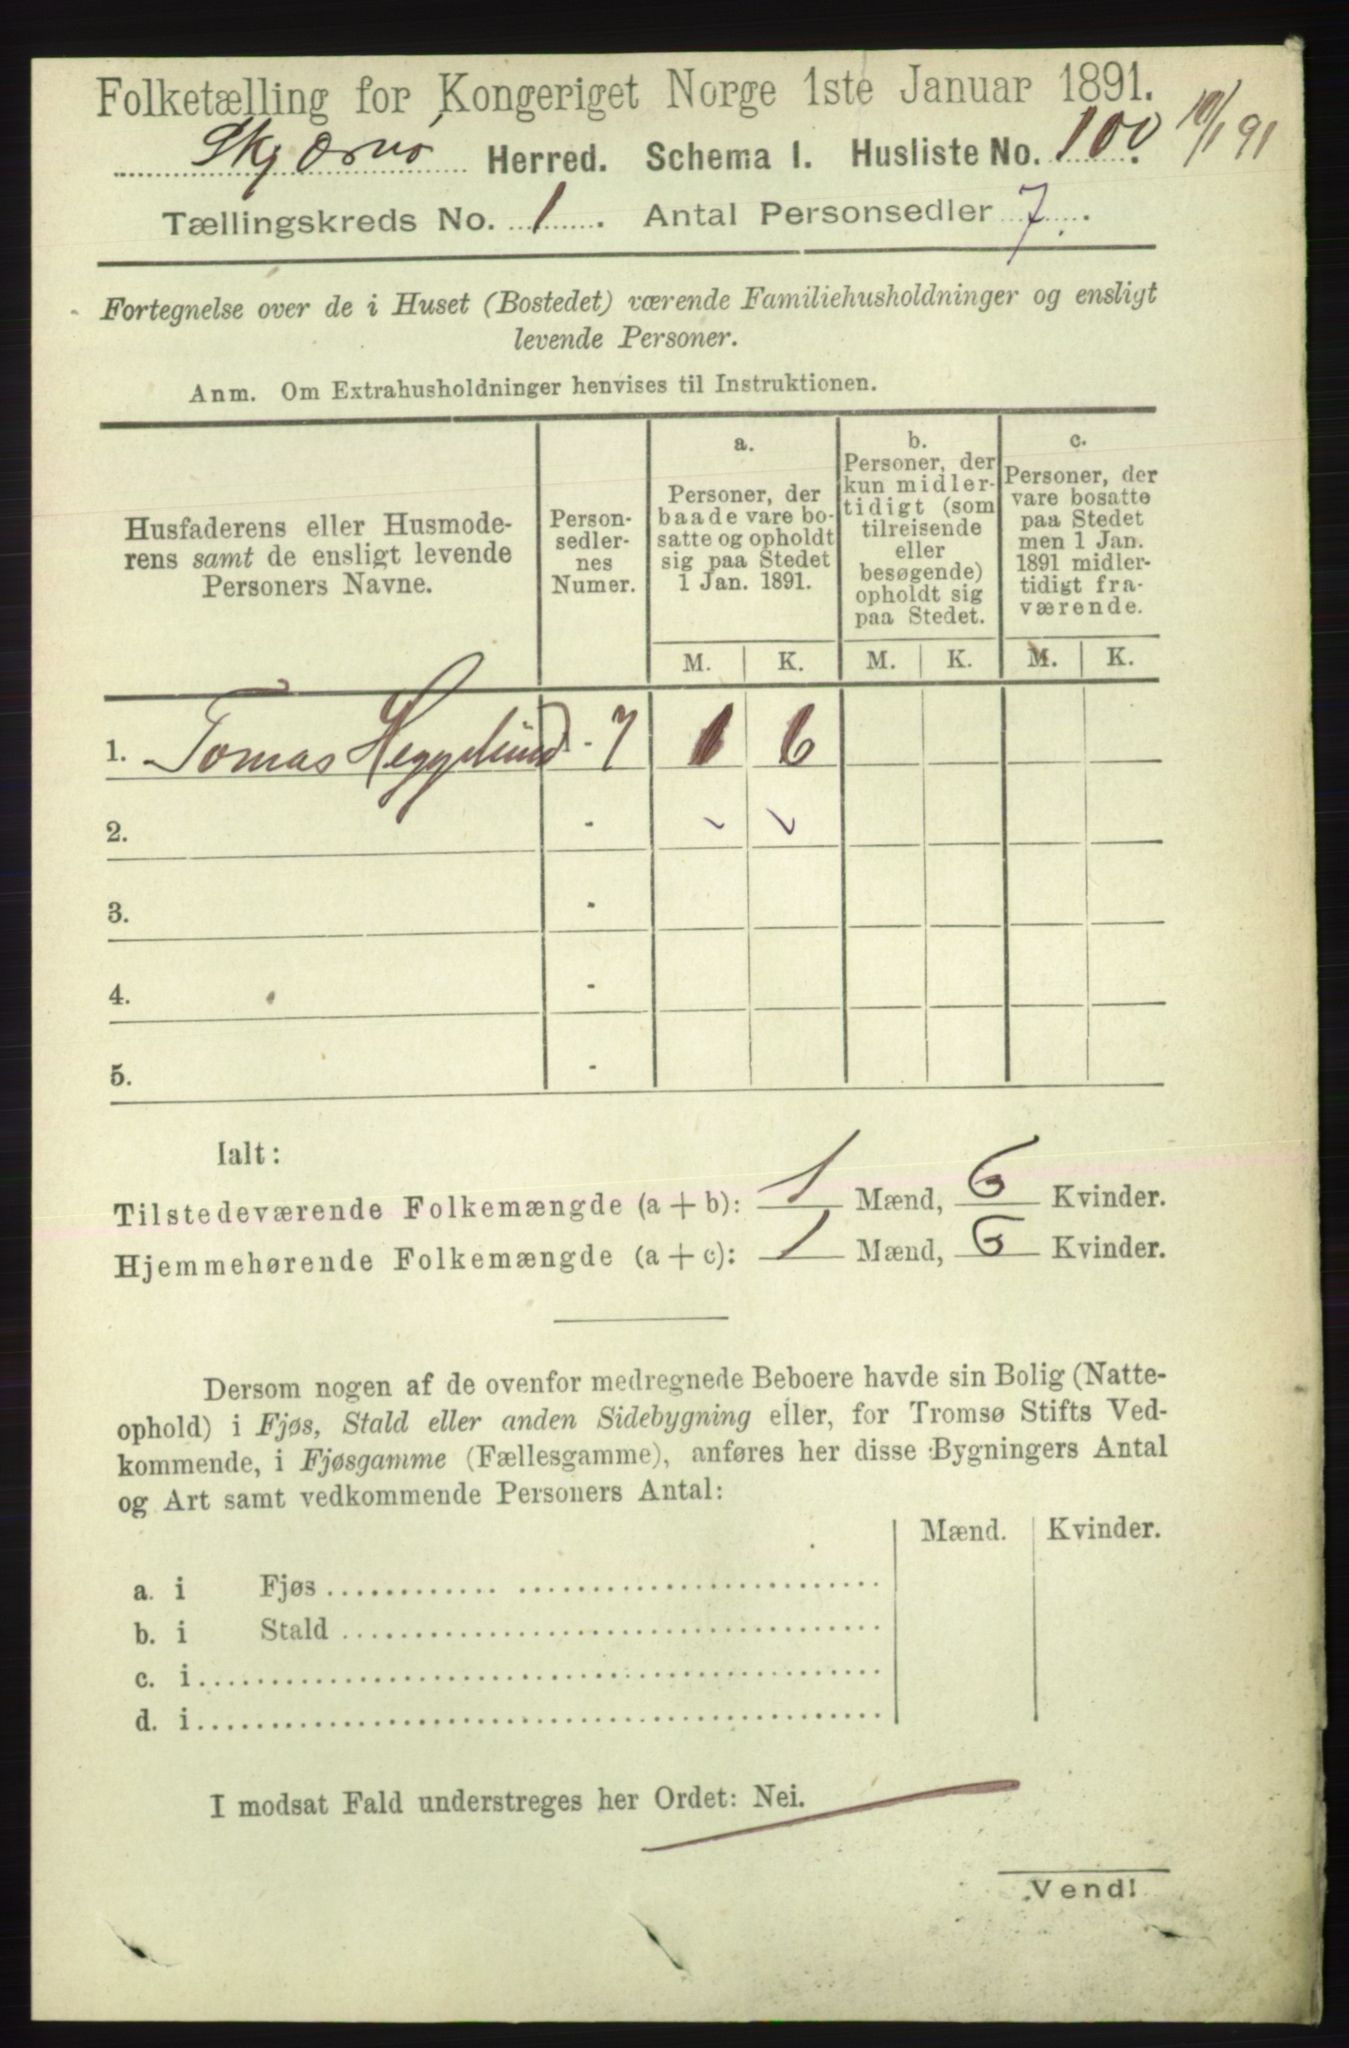 Folketælling for Kongeriget Norge 1ste Januar 1891.
Skjærvö Herred. Schema I. Husliste No. 100. 10/1 91
Tællingskreds No. 1. Antal Personsedler 7.
Fortegnelse over de i Huset (Bostedet) værende Familiehusholdninger og ensligt
levende Personer.
Anm. Om Extrahusholdninger henvises til Instruktionen.
Husfaderens eller Husmode-
rens samt de ensligt levende
Personers Navne.
Person-
sedler-
nes
Numer.
a.
Personer, der
baade vare bo-
satte og opholdt
sig paa Stedet
1 Jan. 1891.
b.
Personer, der
kun midler-
tidigt (som
tilreisende
eller
besøgende)
opholdt sig
paa Stedet.
c.
Personer, der
vare bosatte
paa Stedet
men 1 Jan.
1891 midler-
tidigt fra-
værende.
M. K. M. K. M. K.
1. Tomas Heggelund - 7 1 6
2. -
3. -
4. -
5. -
Ialt:
Tilstedeværende Folkemængde (a + b): 1 Mænd, 6 Kvinder.
Hjemmehørende Folkemængde (a + c): 1 Mænd, 6 Kvinder.
Dersom nogen af de ovenfor medregnede Beboere havde sin Bolig (Natte-
ophold) i Fjøs, Stald eller anden Sidebygning eller, for Tromsø Stifts Ved-
kommende, i Fjøsgamme (Fællesgamme), anføres her disse Bygningers Antal
og Art samt vedkommende Personers Antal:
Mænd. Kvinder.
a. i Fjøs
b. i Stald
c. i
d. i
I modsat Fald understreges her Ordet: Nei.
Vend!